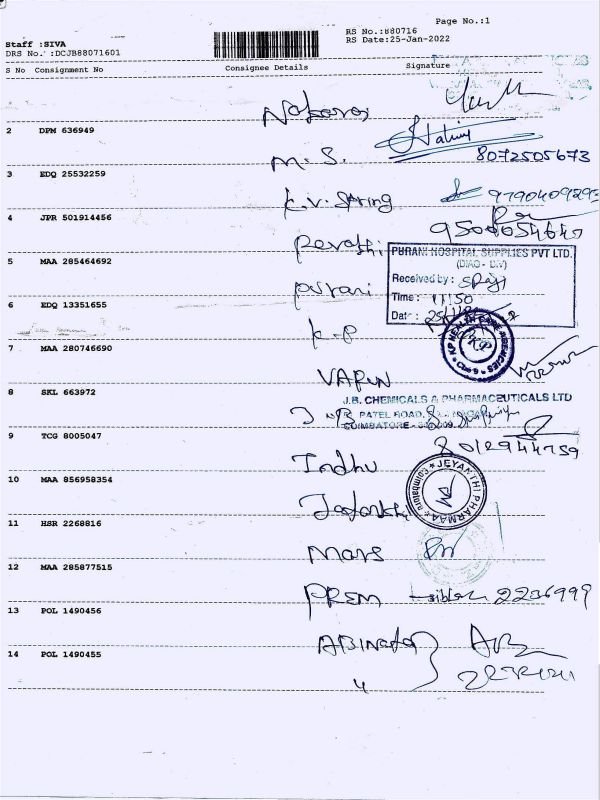 Page No.:1
RS No.:880716
Staff :SIVA
RS Date:25-Jan-2022
DRS No.:DCJB88071601
S No Consignment No Consignee Details Signature
2 DPM 636949
M. S.
8072505673
3 EDQ 25532259
K.V. 
4 JPR 501914456
Revathi
5 MAA 285464692
PURANI HOSPITAL SUPPLIES PVT LTD.
(DIAG - DIV)
Purani
Received by :
Time : 11:50
6 EDQ 13351655
Date :
K.P
KP HEALTH CARE AGENCIES
KP
7 MAA 280746690
VARUN
8 SKL 663972
J.B. CHEMICALS & PHARMACEUTICALS LTD
PATEL ROAD,
COIMBATORE
9 TCG 8005047
8012944759
Indhu
JEYANTHI PHARMAA
Coimbatore
10 MAA 856958354
11 HSR 2268816
Mars
12 MAA 285877515
PREM 2236999
13 POL 1490456
14 POL 1490455